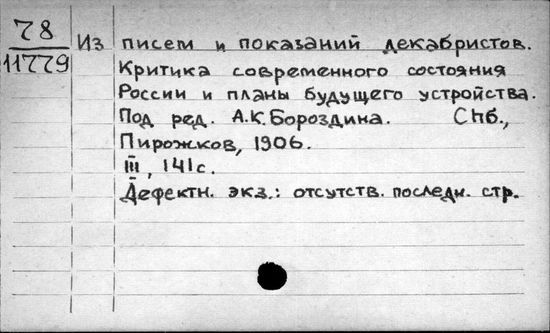 78
11779
Из писем и показаний декабристов.
Критика современного состояния
России и планы будущего устройства.
Под ред. А.К. Бороздина. Спб.,
Пирожков, 1906.
III, 141с.
Дефектн. экз.: отсутств. последн. стр.